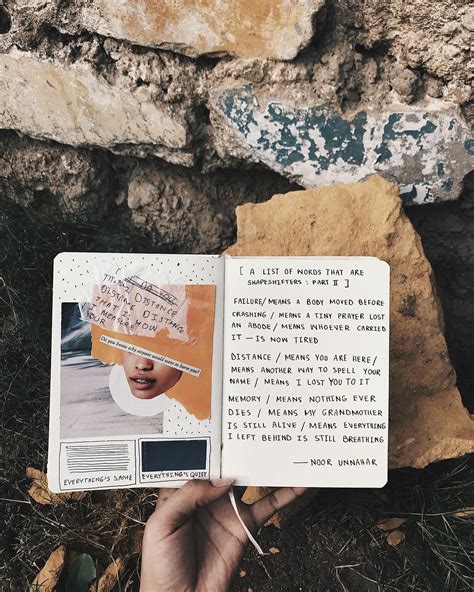 MIND DISTANCE
DISTANCE
THAT IS DISTANCE
I MEASURE HOW
YOUR
Do you know why anyone would want to harm you?
EVERYTHING'S SAME
EVERYTHING'S QUIET
[ A LIST OF WORDS THAT ARE
SHAPESHIFTERS : PART II ]
FAILURE/ MEANS A BODY MOVED BEFORE
CRASHING / MEANS A TINY PRAYER LOST
AN ABODE / MEANS WHOEVER CARRIED
IT — IS NOW TIRED
DISTANCE / MEANS YOU ARE HERE /
MEANS ANOTHER WAY TO SPELL YOUR
NAME / MEANS I LOST YOU TO IT
MEMORY / MEANS NOTHING EVER
DIES / MEANS MY GRANDMOTHER
IS STILL ALIVE / MEANS EVERYTHING
I LEFT BEHIND IS STILL BREATHING
— NOOR UNNAHAR